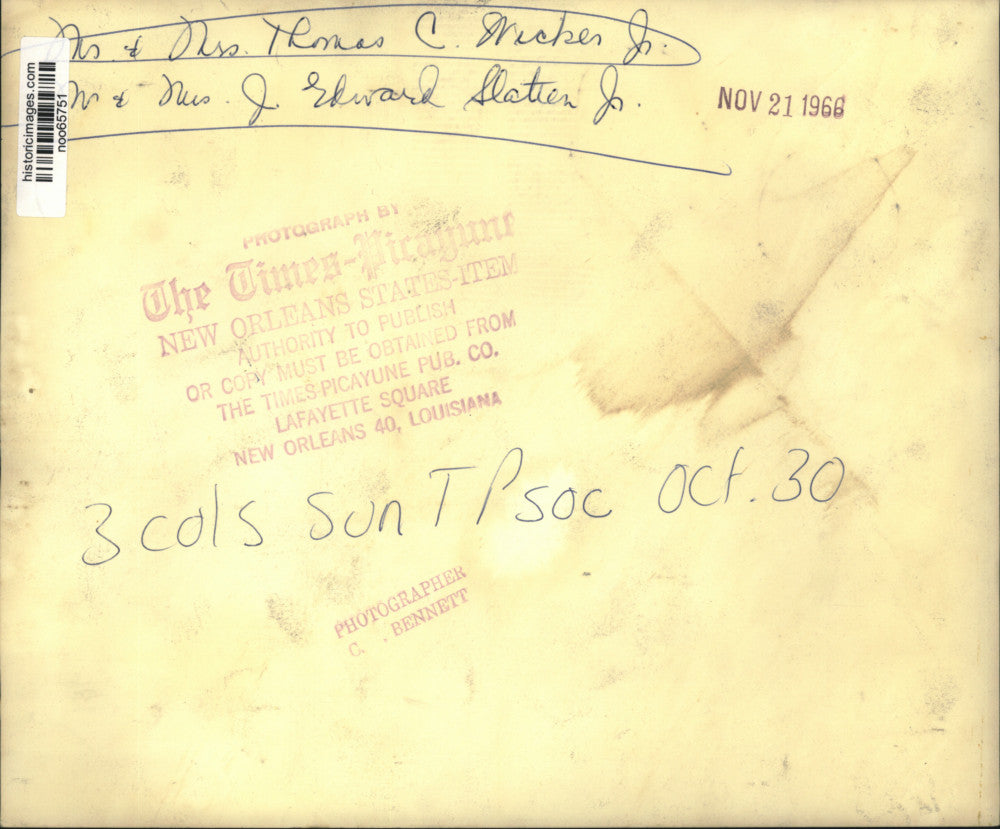 Mr. & Mrs. Thomas C. Wicker Jr.
Mr & Mrs. J. Edward Slatten Jr.
NOV 21 1966
historicimages.com
noo65751
PHOTOGRAPH BY
The Times-Picayune
NEW ORLEANS STATES-ITEM
AUTHORITY TO PUBLISH
OR COPY MUST BE OBTAINED FROM
THE TIMES-PICAYUNE PUB. CO.
LAFAYETTE SQUARE
NEW ORLEANS 40, LOUISIANA
3 cols Sun TP soc Oct. 30
PHOTOGRAPHER
C. . BENNETT